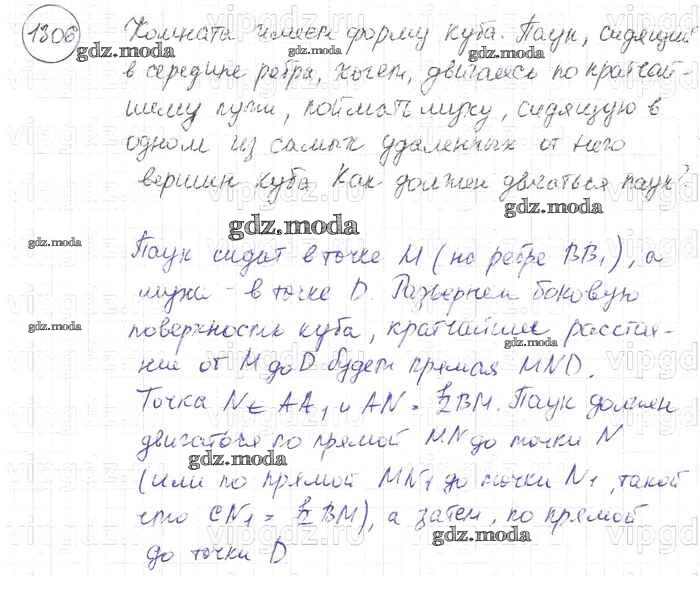 1306
Комната имеет форму куба. Паук, сидящий
в середине ребра, хочет, двигаясь по кратчай-
шему пути, поймать муху, сидящую в
одном из самых удаленных от него
вершин куба. Как должен двигаться паук?
gdz.moda
gdz.moda
gdz.moda
gdz.moda
gdz.moda
gdz.moda
Паук сидит в точке M (на ребре BB₁), а
муха - в точке D. Развернем боковую
поверхность куба, кратчайшее расстоя-
нии от M до D будет прямая MND.
Точка N ∈ AA₁ и AN = 1/2 BM. Паук должен
двигаться по прямой MN до точки N
(или по прямой MN₁ до точки N₁, такой
что CN₁ = 1/2 BM), а затем, по прямой
до точки D
gdz.moda
gdz.moda
gdz.moda
gdz.moda